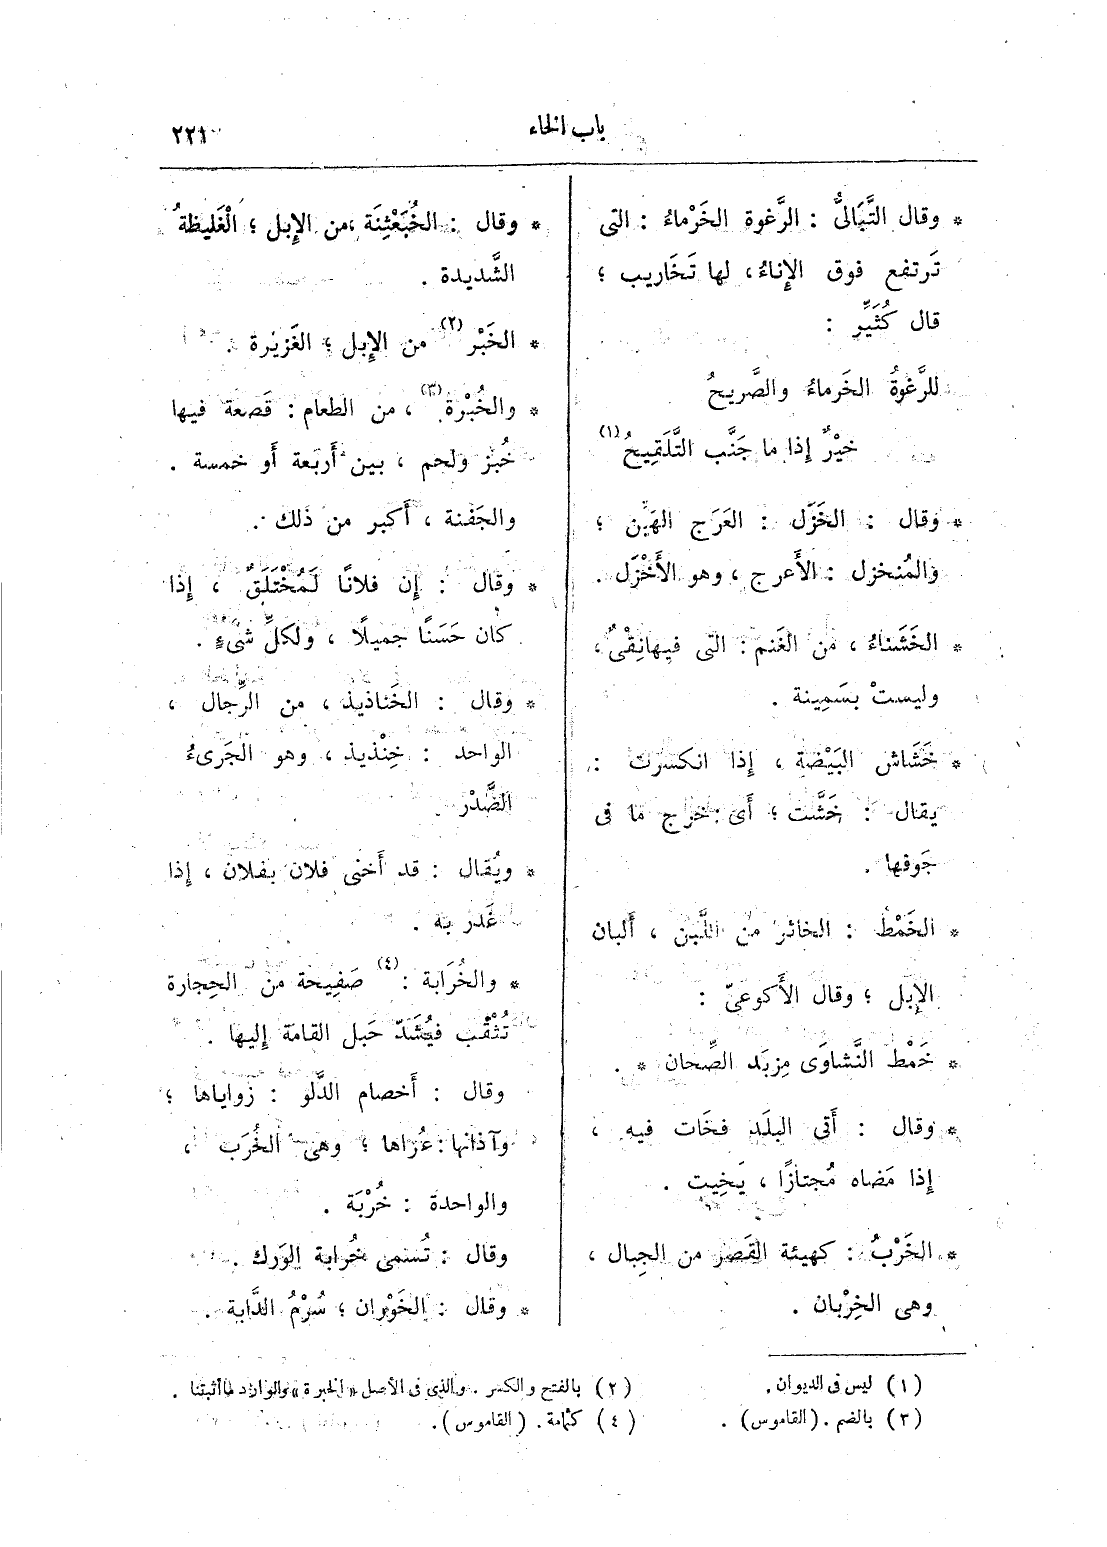 باب الخاء
٢٢١
* وقال التَّبَالىُّ : الرَّغوة الخَرْماءُ : التى
تَرتفع فوق الإِناءُ، لها تَخَاريب ؛
قال كُثَيِّرٍ :
للرَّغوةُ الخَرماءُ والصَّريحُ
خيْرٌ إِذا ما جَنَّب التَّلَقِيحُ (١)
* وقال : الخَزَل : العَرَج الهَيِّن ؛
والمُنخزل : الأَعرج ، وهو الأَخْزَل .
* الخَشَناءُ ، من الغَنم : التى فيها نِقْىٌ ،
وليستْ بسَمِينة .
* خَشَاش البَيْضة ، إِذا انكسرت :
يقال : خَشَّت ؛ أَى : خرج ما فى
جَوفها .
* الخَمْط : الخاثر من اللَّبن ، أَلبان
الإِبل ؛ وقال الأَكوعىّ :
* خَمْط النَّشاوَى مِزبَد الصِّحان * .
* وقال : أَتى البلَد فخَات فيه ،
إِذا مَضاه مُجتازًا ، يَخِيت .
* الخَرْبُ : كهيئة القَصر من الجِبال ،
وهى الخِرْبان .
* وقال : الخُبَعْثِنَة ، من الإِبل ؛ الْغَليظةُ
الشَّديدة .
* الخَبْر (٢) من الإِبل ؛ الغَزيْرة .
* والخُبْرة (٣) ، من الطعام : قَصعة فيها
خُبز ولحم ، بين أَربعة أَو خمسة .
والجَفنة ، أَكبر من ذلك .
* وقال : إِن فلانًا لَمُخْتَلَقٌ ، إِذا
كان حَسَنًا جميلًا ، ولكلِّ شىْءٍ .
* وقال : الخَناذيذ ، من الرِّجال ،
الواحد : خِنْذيذ ، وهو الجَرىءُ
الصَّدْر .
* ويُقال : قد أَخنى فلان بفلان ، إِذا
غَدر به .
* والخُرَابة : (٤) صَفِيحة من الحِجارة
تُثْقَب فيُشَدّ حَبل القامة إِليها .
وقال : أَخصام الدَّلو : زواياها ؛
وآذانها : عُراها ؛ وهى الخُرَب ،
والواحدة : خُرْبَة .
وقال : تُسمى خُرابة الوَرك .
* وقال : الخَوْران ؛ سُرْمُ الدَّابة .
(١) ليس فى الديوان .
(٢) بالفتح والكسر . والذى فى الأصل «الخبرة» والوارد ما أثبتنا .
(٣) بالضم . (القاموس) .
(٤) كثمامة . (القاموس) .